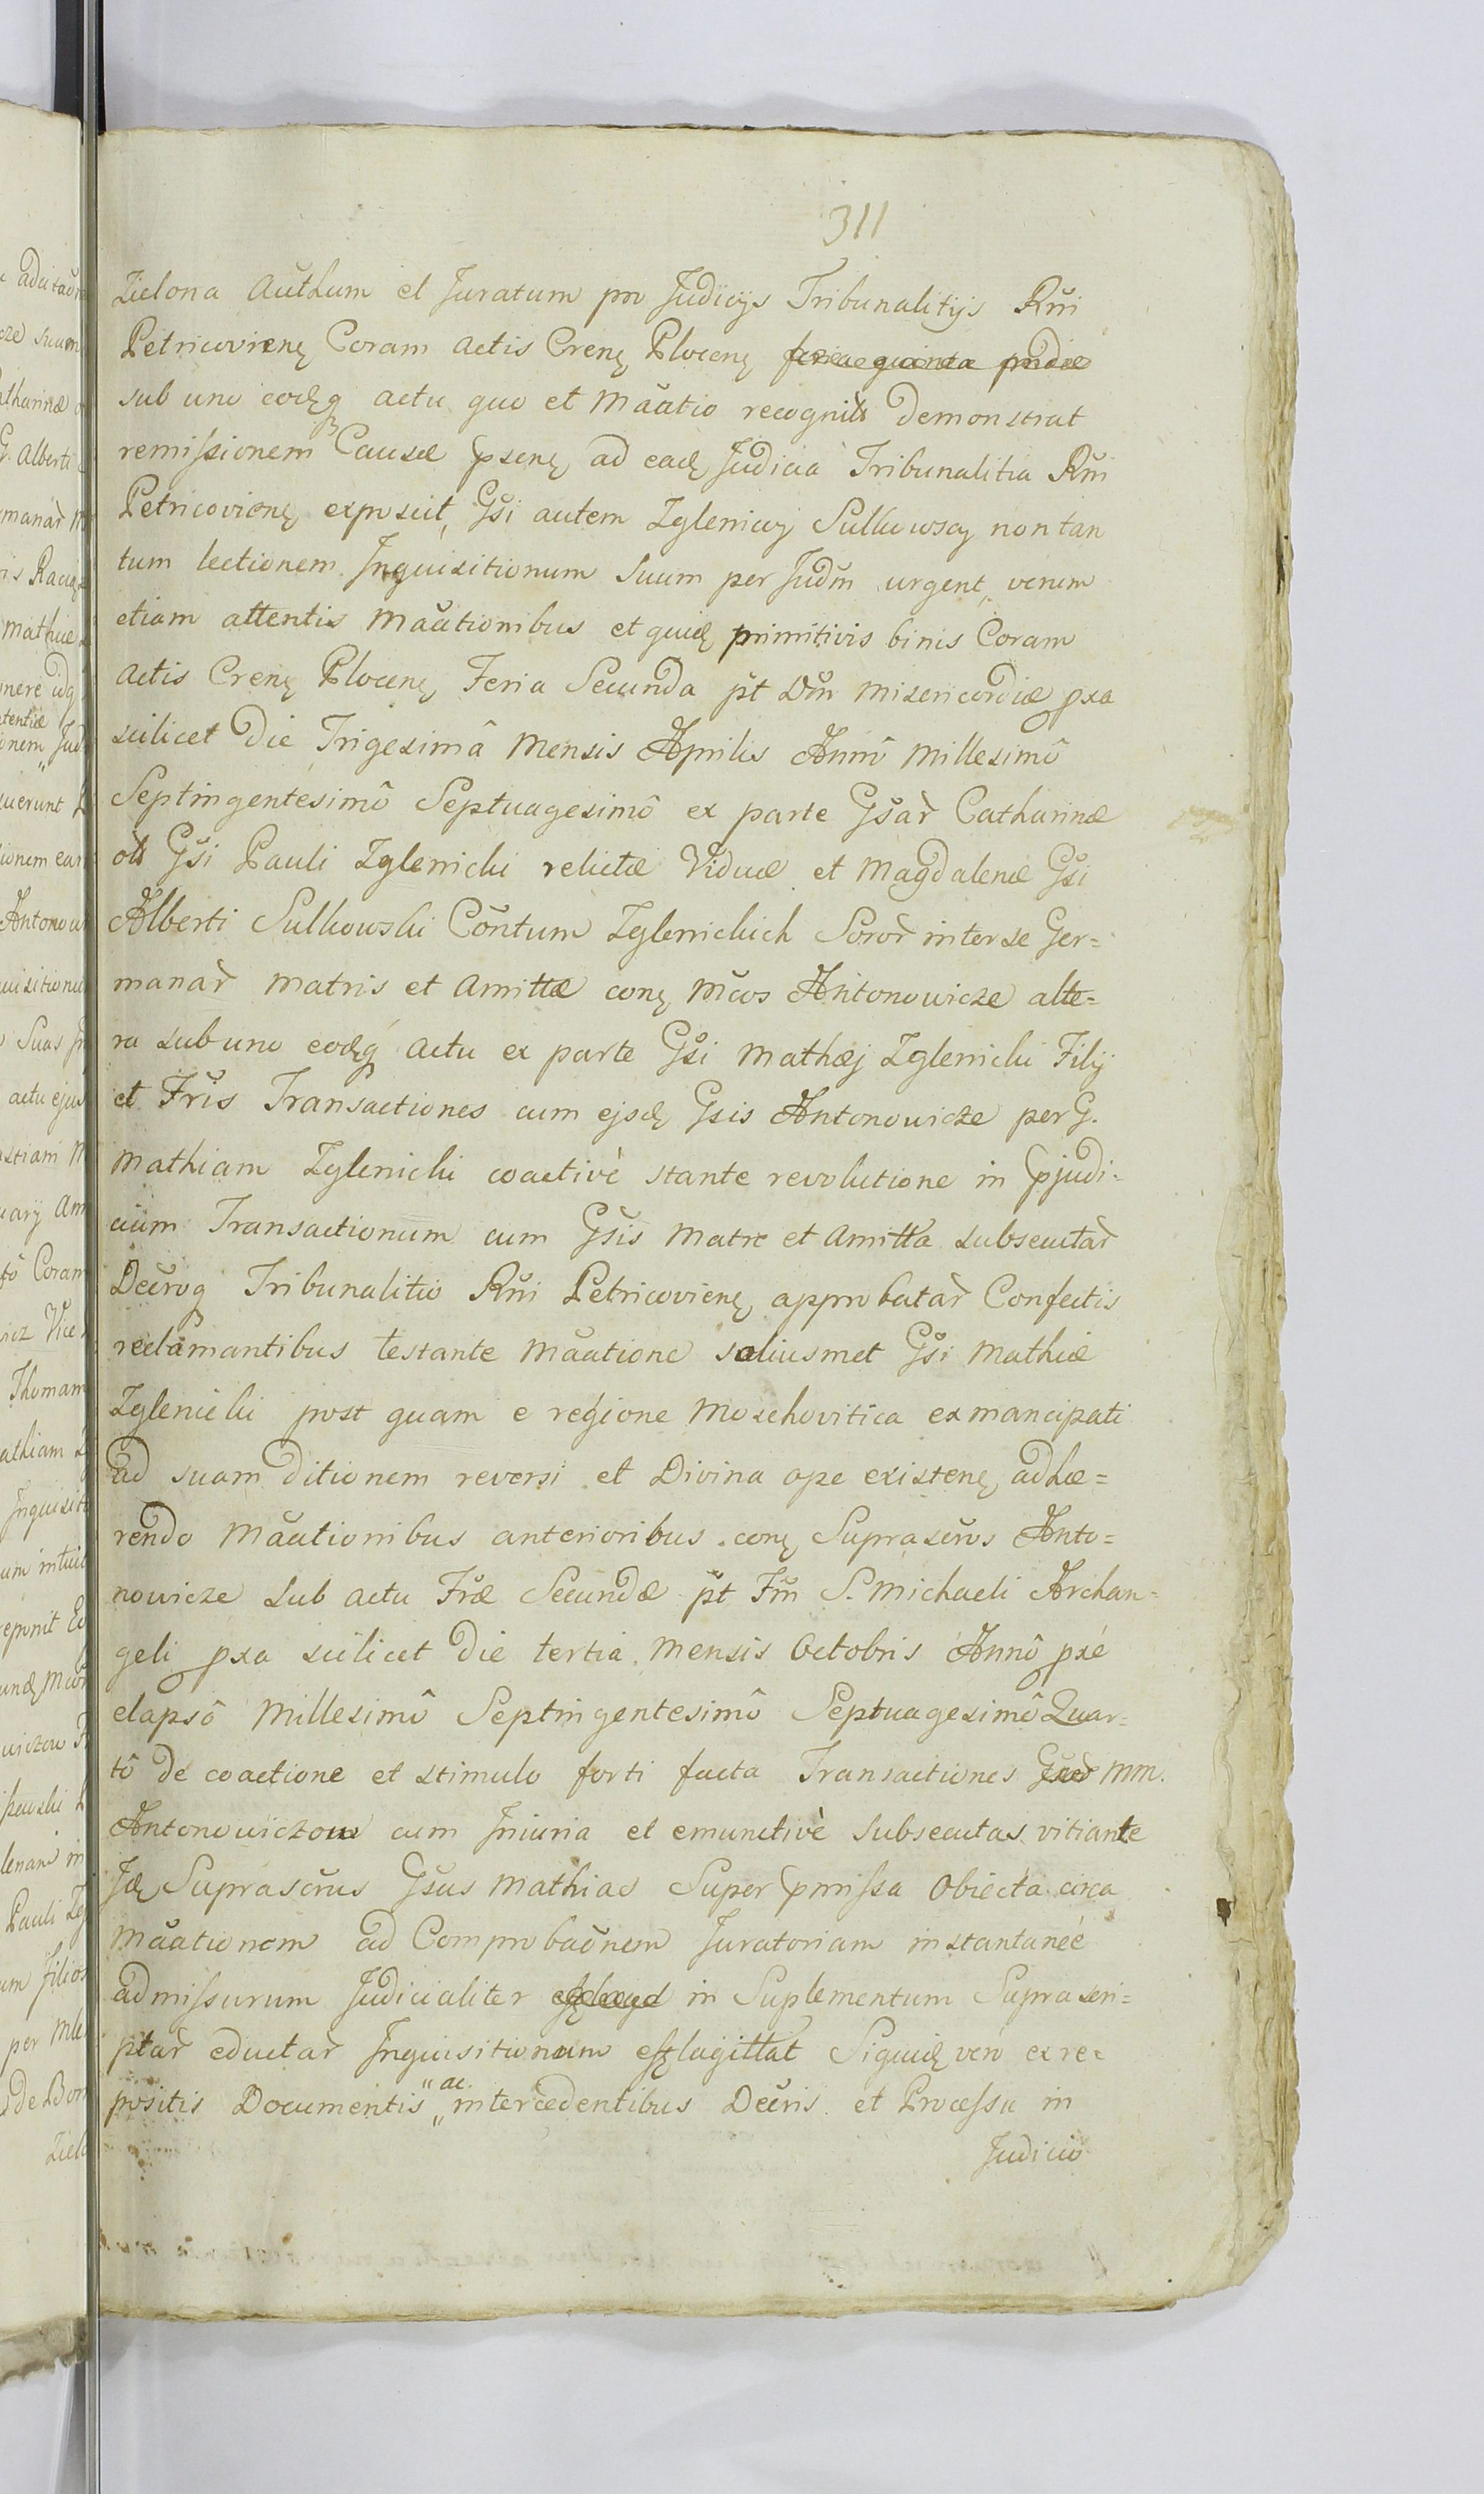 311
Zielona Authum et Juratum pro Judicijs Tribunalitijs Rňi
Petricovienę Coram Actis Crenę Plocenę feria quinta pridie
sub uno eodęq actu quo et Mǎatio recognit demonstrat
remissionem Causæ pseñę ad eadę Judicia Tribunalitia Rňi
Petricovienę exposcit, Gši autem Zgleniccy Sulkowscy non tan
tum lectionem Inquisitionum Suum per Judm̃ urgent, verum
etiam attentis Mǎationibus et quidę primitivis binis Coram
Actis Crenę Plocenę Feria Secunda pt̃ Dom̃ Misericordiæ pxa
scilicet Die Trigesimâ Mensis Aprilis Annô Millesimô
Septingentesimô Septuagesimô ex parte Gšar̃ Catharinæ
olt Gši Pauli Zglenicki relictæ Viduæ et Magdalenæ Gši
Alberti Sulkowski Cõntum Zglenickich Soror̃ inter se Ger=
manar̃ Matris et Amittæ conę Mčos Antonowicze alte=
ra sub uno eodęq́ Actu ex parte Gši Mathæj Zglenicki Filij
et Fris Transactiones cum ejsdę Gsis Antonowicze per G.
Mathiam Zglenicki coactivè stante revolutione in Pjudi=
cium Transactionum cum Gšis Matre et Amitta subsecutar̃
Decroq Tribunalitio Rňi Petricovienę approbatar̃ Confectis
reclamantibus testante Mǎatione soliusmet Gši Mathiæ
Zglenicki post quam e regione Moschovitica exmancipati
ad suam ditionem reversi et Divina ope existenę adhæ=
rendo Mǎationibus anterioribus conę Suprascr̃os Anto=
nowicze Sub actu Fræ Secundæ pt̃ Fm̃ S. Michaeli Archan=
geli pxa scilicet Die tertia Mensis Octobris Annô pxé
elapsô Millesimô Septingentesimô Septuagesimô Quar=
tô de coactione et stimulo forti facta Transactiones MM.
Antonowiczow cum Iniuria et emunctivè subsecutas vitiante
Idę Suprascr̃us Gšus Mathias Super Pmissa Obiecta circa
Mǎationem ad Comprobaõnem Juratoriam instantaneé
admissurum Judicialiter in Suplementum Suprascri=
ptar̃ eductar̃ Inquisitionum efflagittat Siquidę vero ex re=
positis Documentis ,, ac. ,, intercedentibus Decris. et Processu in
Judicio